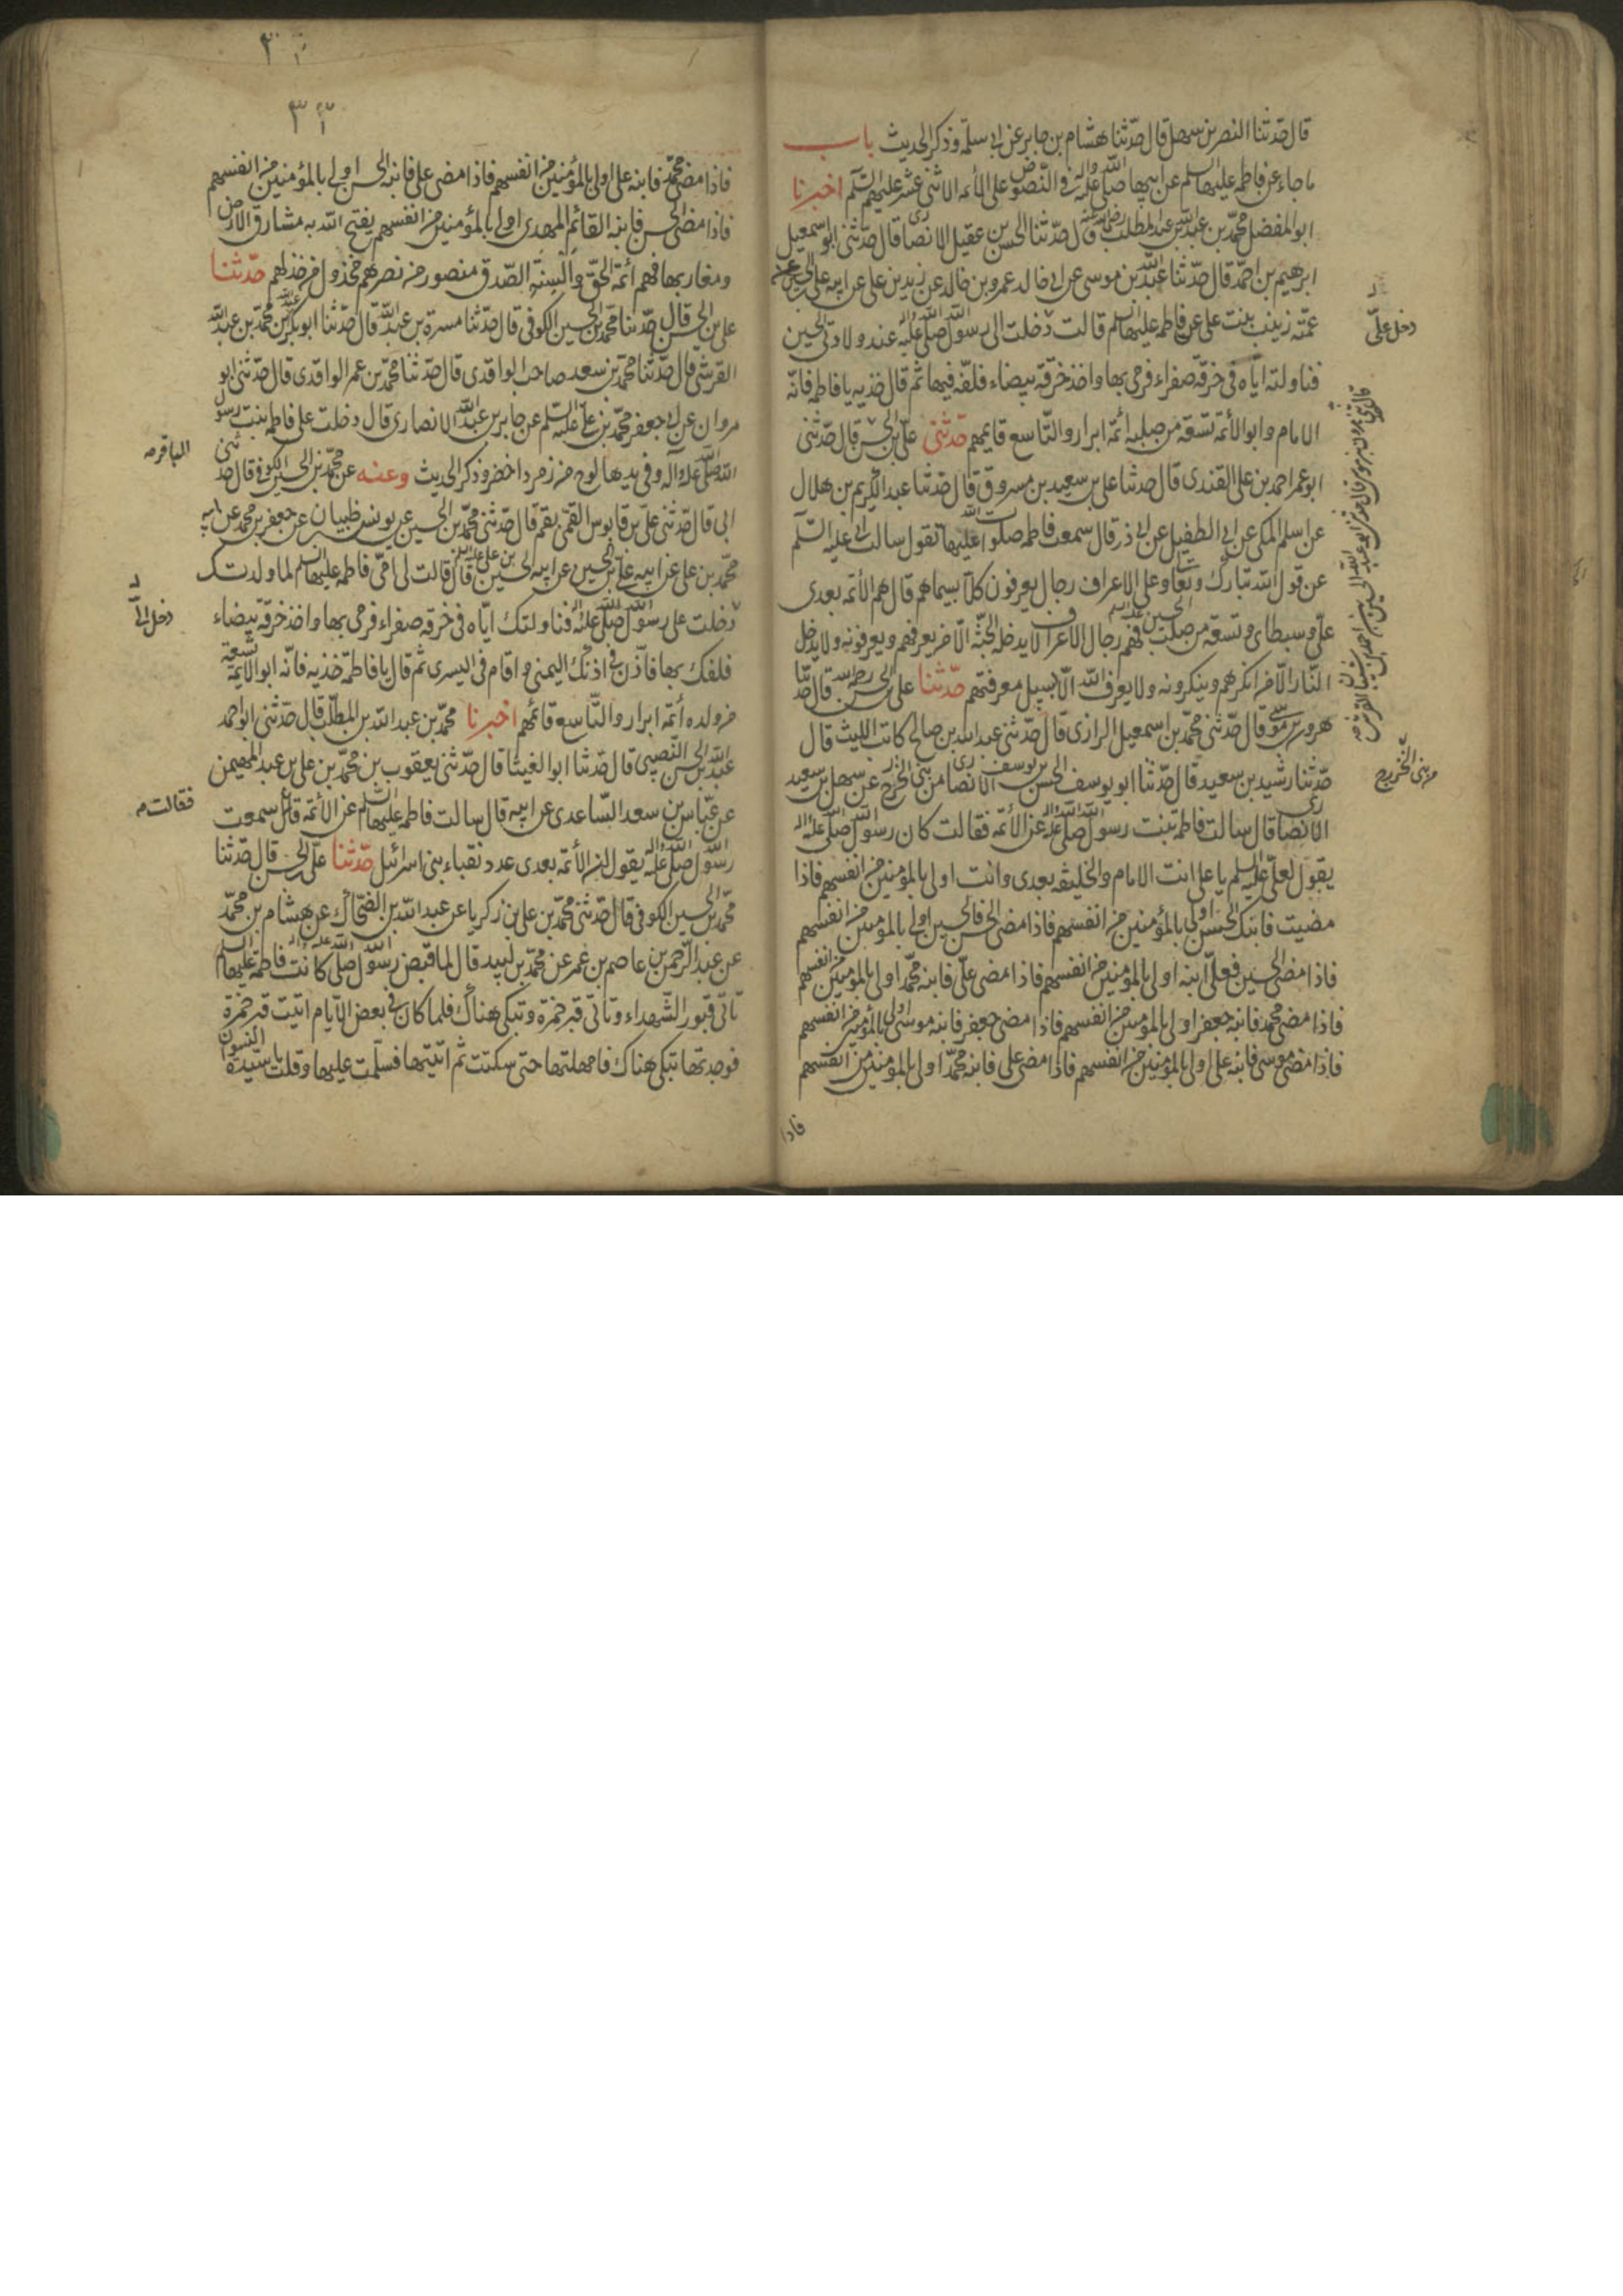 قال حدّثنا النضر بن سهل قال حدّثنا هشام بن جابر عن ابى سلمة وذكر الحديث باب
ما جاء عن فاطمه عليها السلم عن ابيها صلى الله عليه واله في النصوص على الأئمه الاثنى عشر عليهم السّلم اخبرنا
ابو المفضل محمّد بن عبد الله بن عبد المطلب قال حدّثنا الحسن بن عقيل الانصارى قال حدّثنى ابو اسمعيل
ابرهيم بن احمد قال حدّثنا عبد الله بن موسى عن ابى خالد عمرو بن خالد عن زيد بن على عن ابيه على بن الحسين عن
عمّته زينب بنت على عن فاطمه عليها السلم قالت دخلت الى رسول الله صلى الله عليه واله عند ولادتى الحسين
فناولته ايّاه فى خرقة صفراء فرمى بها واخذ خرقة بيضاء فلفّه فيها ثم قال خذيه يا فاطمه فانّه
الامام وابو الائمه تسعة من صلبه ائمّة ابرار والتّاسع قايمهم حدّثنى علىّ بن الحسن قال حدّثنى
ابو عمر احمد بن على القندى قال حدثنا على بن سعيد بن مسروق قال حدّثنا عبد الكريم بن هلال
عن اسلم المكى عن ابى الطفيل عن ابى ذر قال سمعت فاطمه صلوات الله عليها تقول سالت ابى عليه السّلم
عن قول الله تبارك وتعالى وعلى الاعراف رجال يعرفون كلا بسيماهم قال هم الأئمه بعدى
علىّ وسبطاى وتسعة من صلب الحسين فهم رجال الاعراف لا يدخل الجنّة الّا من يعرفهم ويعرفونه ولا يدخل
النّار الّا من انكرهم وينكرونه ولا يعرف الله الّا بسبيل معرفتهم حدّثنا على بن الحسن رحمه الله قال حدّثنا
هرون بن موسى قال حدّثنى محمّد بن اسمعيل الرازى قال حدّثنى عبد الله بن صالح كاتب الليث قال
حدّثنا رشيد بن سعيد قال حدّثنا ابو يوسف الحسن بن يوسف الانصارى من بنى الخزرج عن سهل بن سعيد
الانصارى قال سالت فاطمة بنت رسول الله صلى الله عليه واله عن الأئمه فقالت كان رسول الله صلى الله عليه واله
يقول لعلىّ عليه السلم يا على انت الامام والخليفه بعدى وانت اولى بالمؤمنين من انفسهم فاذا
مضيت فابنك الحسن اولى بالمؤمنين من انفسهم فاذا مضى الحسن فالحسين اولى بالمؤمنين من انفسهم
فاذا مضى الحسين فعلىّ ابنه اولى بالمؤمنين من انفسهم فاذا مضى علىّ فابنه محمّد اولى بالمؤمنين من انفسهم
فاذا مضى محمد فابنه جعفر اولى بالمؤمنين من انفسهم فاذا مضى جعفر فابنه موسى اولى بالمؤمنين من انفسهم
فاذا مضى موسى فابنه على اولى بالمؤمنين من انفسهم فاذا مضى على فابنه محمّد اولى بالمؤمنين من انفسهم
فاذا
دخل علىّ
من بنى الخزرج
فاذا مضى محمّد فابنه على اولى بالمؤمنين من انفسهم فاذا مضى على فابنه الحسن اولى بالمؤمنين من انفسهم
فاذا مضى الحسن فابنه القائم المهدى اولى بالمؤمنين من انفسهم يفتح الله به مشارق الارض
ومغاربها فهم ائمّة الحقّ والسنة الصّدق منصور من نصرهم مخذول من خذلهم حدّثنا
على بن الحسن قال حدّثنا محمّد بن الحسين الكوفى قال حدّثنا مسرة بن عبد الله قال حدّثنا ابو بكر بن محمّد بن عبد الله
القرشى قال حدّثنا محمّد بن سعد صاحب الواقدى قال حدّثنا محمّد بن عمر الواقدى قال حدّثنى ابو
مروان عن ابى جعفر محمّد بن على عليه السّلم عن جابر بن عبد الله الانصارى قال دخلت على فاطمه بنت رسول
الله صلى الله عليه وآله وفى يديها لوح من زمرد اخضر وذكر الحديث وعنه عن محمّد بن الحسين الكوفى قال حدثنى
ابى قال حدّثنى علىّ بن قابوس القمى بقم قال حدّثنى محمّد بن الحسين عن يونس بن ظبيان عن جعفر بن محمد عن ابيه
محمّد بن على عن ابيه على بن الحسين عن ابيه الحسين بن على عليه السلم قال قالت لى امى فاطمه عليها السلم لما ولدتك
دخلت على رسول الله صلى الله عليه واله فناولتك ايّاه فى خرقه صفراء فرمى بها واخذ خرقة بيضاء
فلفك بها فاذّن فى اذنك اليمنى واقام فى اليسرى ثم قال يا فاطمه خذيه فانّه ابو الائمّة تسعة
من ولده أئمّة ابرار والتّاسع قائمهم اخبرنا محمّد بن عبد الله بن المطلّب قال حدّثنى ابو احمد
عبد الله بن الحسن النّصيبى قال حدّثنا ابو الغيثا قال حدّثنى يعقوب بن محمّد بن على بن عبد المهيمن
عن عبّاس بن سعد السّاعدى عن ابيه قال سالت فاطمه عليها السّلم عن الأئمّة قال سمعت
رسول الله صلى الله عليه واله يقول الأئمّة بعدى عدد نقباء بنى اسرائيل حدّثنا على بن الحسن قال حدّثنا
محمّد بن الحسين الكوفى قال حدّثنى محمّد بن على بن زكريا عن عبد الله بن الضحّاك عن هشام بن محمّد
عن عبد الرّحمن بن عاصم بن عمر عن محمّد بن لبيد قال لما قبض رسول الله صلى الله عليه واله كانت فاطمة عليها السلم
تاتى قبور الشّهداء وتاتى قبر حمزة وتبكى هناك فلما كان فى بعض الايّام اتيت قبر حمزة
فوجدتها تبكى هناك فامهلتها حتى سكتت ثم اتيتها فسلّمت عليها وقلت يا سيّدة النسوان
الباقر
دخل الىّ
فقالت